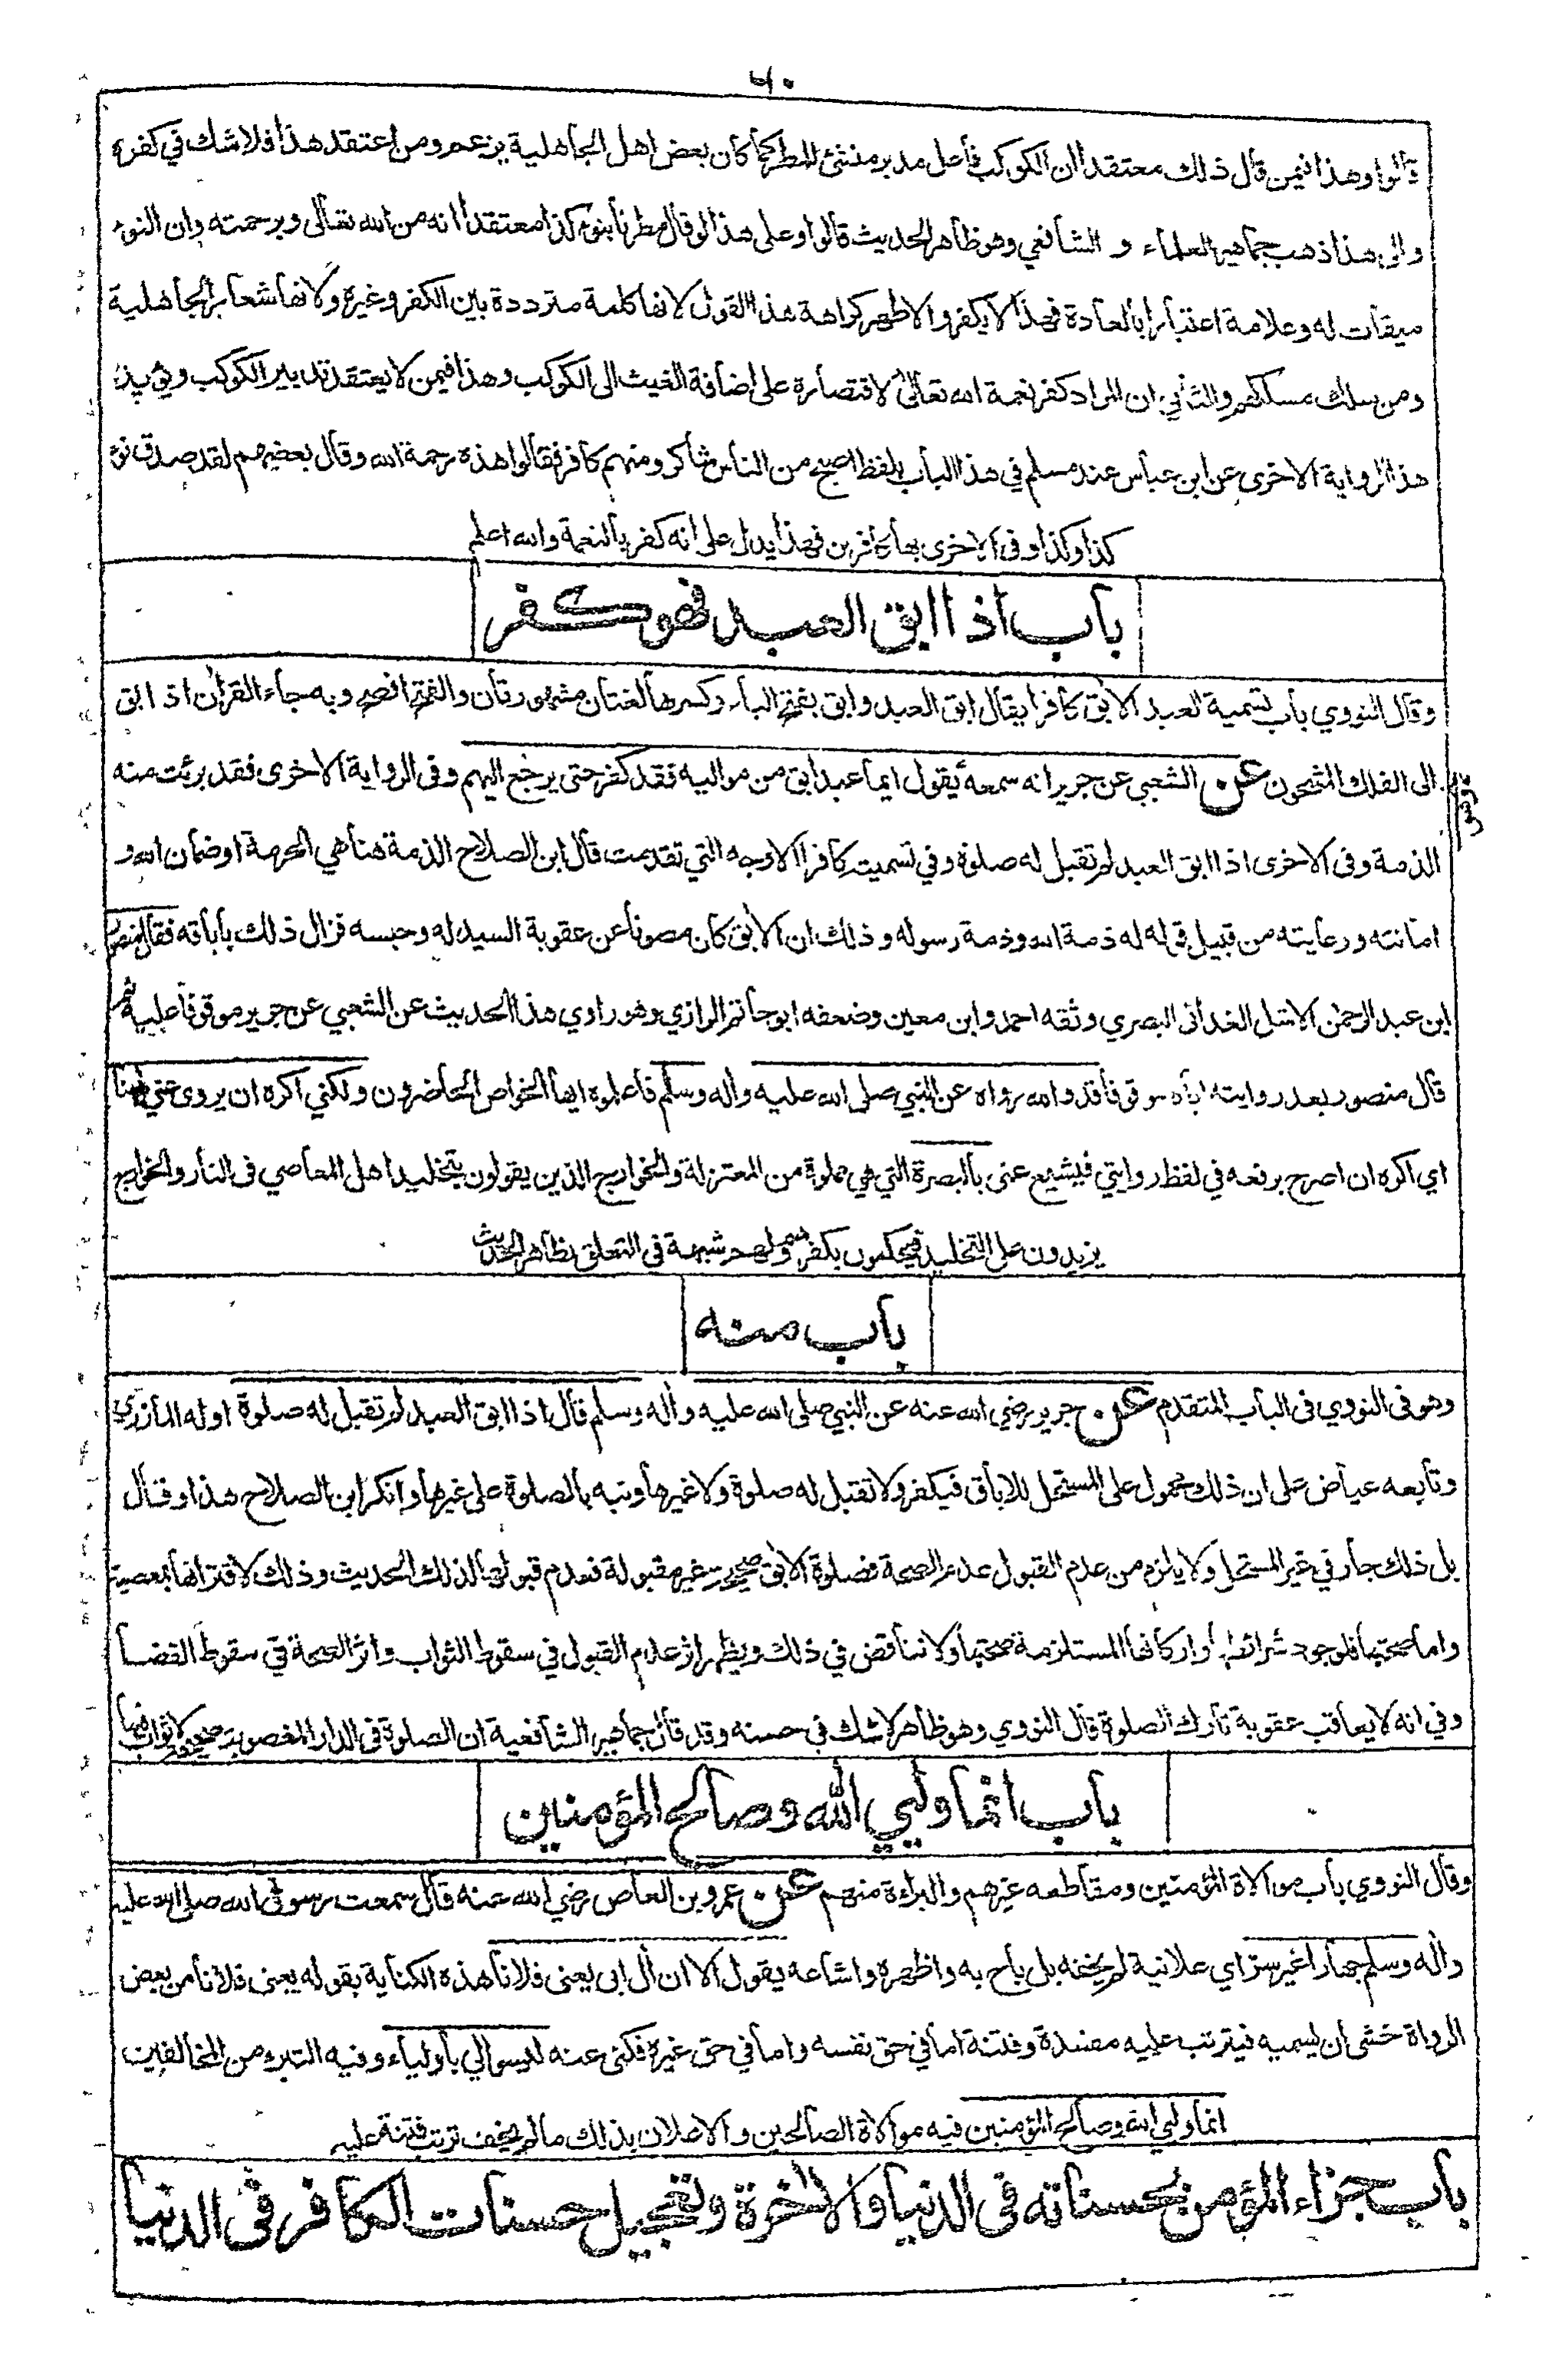 ٦٠
قالوا وهذا فيمن قال ذلك معتقدا ان الكوكب فاعل مدبر منشئ للمطر كما كان بعض اهل الجاهلية يزعم ومن اعتقد هذا فلا شك في كفره
والى هذا ذهب جماهير العلماء و الشافعي وهو ظاهر الحديث قالوا وعلى هذا لو قال مطرنا بنوء كذا معتقدا انه من الله تعالى وبرحمته وان النوء
ميقات له وعلامة اعتبارا بالعادة فهذا لا يكفر والاظهر كراهة هذا القول لانها كلمة مترددة بين الكفر وغيره ولانها شعار الجاهلية
ومن سلك مسلكهم والثاني ان المراد كفر نعمة الله تعالى لاقتصاره على اضافة الغيث الى الكوكب وهذا فيمن لا يعتقد تدبير الكوكب ويؤيد
هذا الرواية الاخرى عن ابن عباس عند مسلم في هذا الباب بلفظ اصبح من الناس شاكر ومنهم كافر فقالوا هذه رحمة الله وقال بعضهم لقد صدق نوء
كذا وكذا وفى الاخرى بها كافرين فهذا يدل على انه كفر بالنعمة والله اعلم
باب اذا ابق العبد فهو كفر
وقال النووي باب تسمية العبد الآبق كافرا يقال ابق العبد وابق بفتح الباء وكسرها لغتان مشهورتان والفتح افصح وبه جاء القران اذ ابق
الى الفلك المشحون عن الشعبي عن جرير انه سمعه يقول ايما عبد ابق من مواليه فقد كفر حتى يرجع اليهم وفى الرواية الاخرى فقد برئت منه
الذمة وفى الاخرى اذا ابق العبد لم تقبل له صلوة وفي تسميته كافرا الاوجه التي تقدمت قال ابن الصلاح الذمة هنا هي الحرمة او ضمان الله و
امانته ورعايته من قبيل قوله له ذمة الله وذمة رسوله وذلك ان الآبق كان مصونا عن عقوبة السيد له وحبسه فزال ذلك باباقه فقال منصور
ابن عبد الرحمن الاشل الغدانى البصري وثقه احمد وابن معين وضعفه ابو حاتم الرازي وهو راوي هذا الحديث عن الشعبي عن جرير موقوفا عليه ثم
قال منصور بعد روايته اياه موقوفا قد والله رواه عن النبي صلى الله عليه وآله وسلم فاعلموه ايها الخواص الحاضرون ولكني اكره ان يروى عني ههنا
اي اكره ان اصرح برفعه في لفظ روايتي فيشيع عنى بالبصرة التي هي مملوة من المعتزلة والخوارج الذين يقولون بتخليد اهل المعاصي فى النار والخوارج
يزيدون على التخليد فيحكمون بكفرهم ولهم شبهة في التعلق بظاهر الحديث
باب منه
وهو فى النووي فى الباب المتقدم عن جرير رضي الله عنه عن النبي صلى الله عليه وآله وسلم قال اذا ابق العبد لم تقبل له صلوة اوله المازري
وتابعه عياض على ان ذلك محمول على المستحل للاباق فيكفر ولا تقبل له صلوة ولا غيرها ونبه بالصلوة على غيرها وانكر ابن الصلاح هذا وقال
بل ذلك جار في غير المستحل ولا يلزم من عدم القبول عدم الصحة فصلوة الآبق صحيحة غير مقبولة فعدم قبولها لذلك الحديث وذلك لاقترانها بمعصية
واما صحتها فلوجود شرائطها واركانها المستلزمة صحتها ولا تناقض في ذلك ويظهر اثر عدم القبول في سقوط الثواب واثر الصحة في سقوط القضا
وفي انه لا يعاقب عقوبة تارك الصلوة قال النووي وهو ظاهر لا شك في حسنه وقد قال جماهير الشافعية ان الصلوة فى الدار المغصوبة صحيحة لا ثواب فيها
باب انما وليي الله وصالح المؤمنين
وقال النووي باب موالاة المؤمنين ومقاطعه غيرهم والبراءة منهم عن عمرو بن العاص رضي الله عنه قال سمعت رسول الله صلى الله عليه
وآله وسلم جهارا غير سرّ اي علانية لم يخفه بل باح به واظهره واشاعه يقول الا ان آل ابى يعنى فلانا هذه الكناية بقوله يعنى فلانا من بعض
الرواة خشى ان يسميه فيترتب عليه مفسدة وفتنة اما في حق نفسه واما في حق غيره فكنى عنه ليسوا لي باولياء وفيه التبرء من المخالفين
انما وليي الله وصالح المؤمنين فيه موالاة الصالحين والاعلان بذلك ما لم يخف ترتب فتنة عليه
باب جزاء المؤمن بحسناته فى الدنيا والآخرة وتعجيل حسنات الكافر فى الدنيا